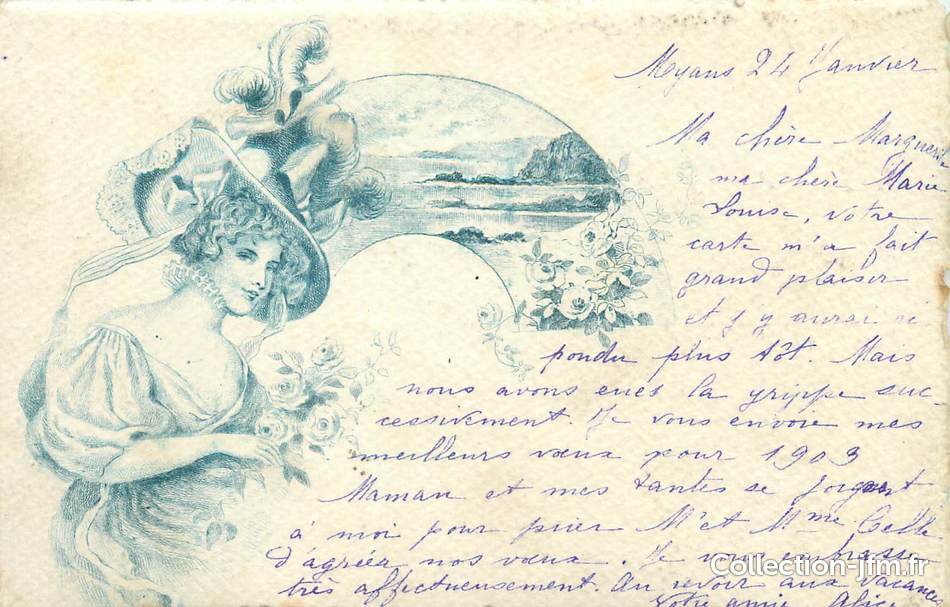 Myans 24 Janvier
Ma chère Marguerite
ma chère Marie
Louise, votre
carte m'a fait
grand plaisir
et j'y aurai ré
pondu plus tôt. Mais
nous avons eues la grippe suc-
cessivement. Je vous envoie mes
meilleurs vœux pour 1903
Maman et mes tantes se joignent
à moi pour prier Mr et Mme Celle
d'agréer nos vœux. Je vous embrasse
très affectueusement. Au revoir aux vacances
Votre amie Alice
Collection-jfm.fr